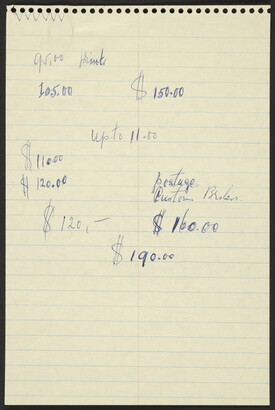 95.00 prints
105.00 $ 150.00
up to 11.00
$ 110.00
$ 120.00 postage
Customs Broker
$ 120,— $ 160.00
$ 190.00